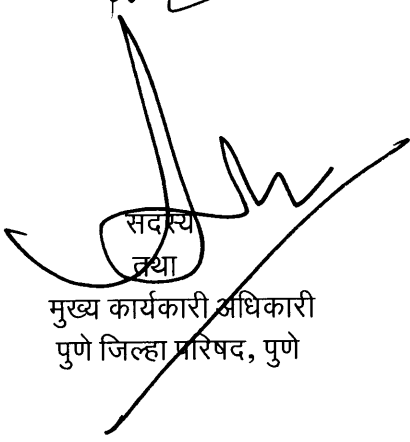 सदस्य
तथा
मुख्य कार्यकारी अधिकारी
पुणे जिल्हा परिषद, पुणे